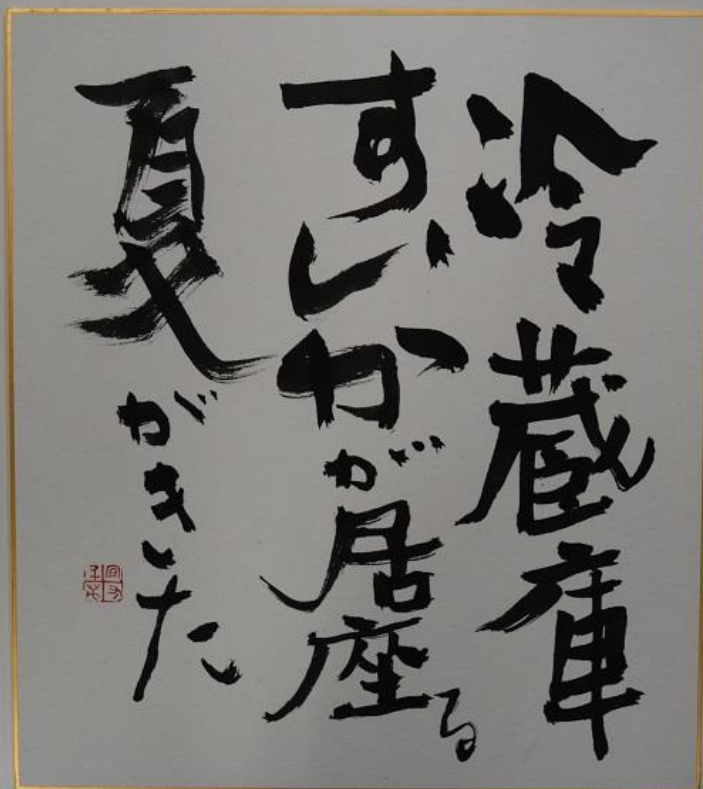 冷蔵庫
すいかが居座る
夏がきた